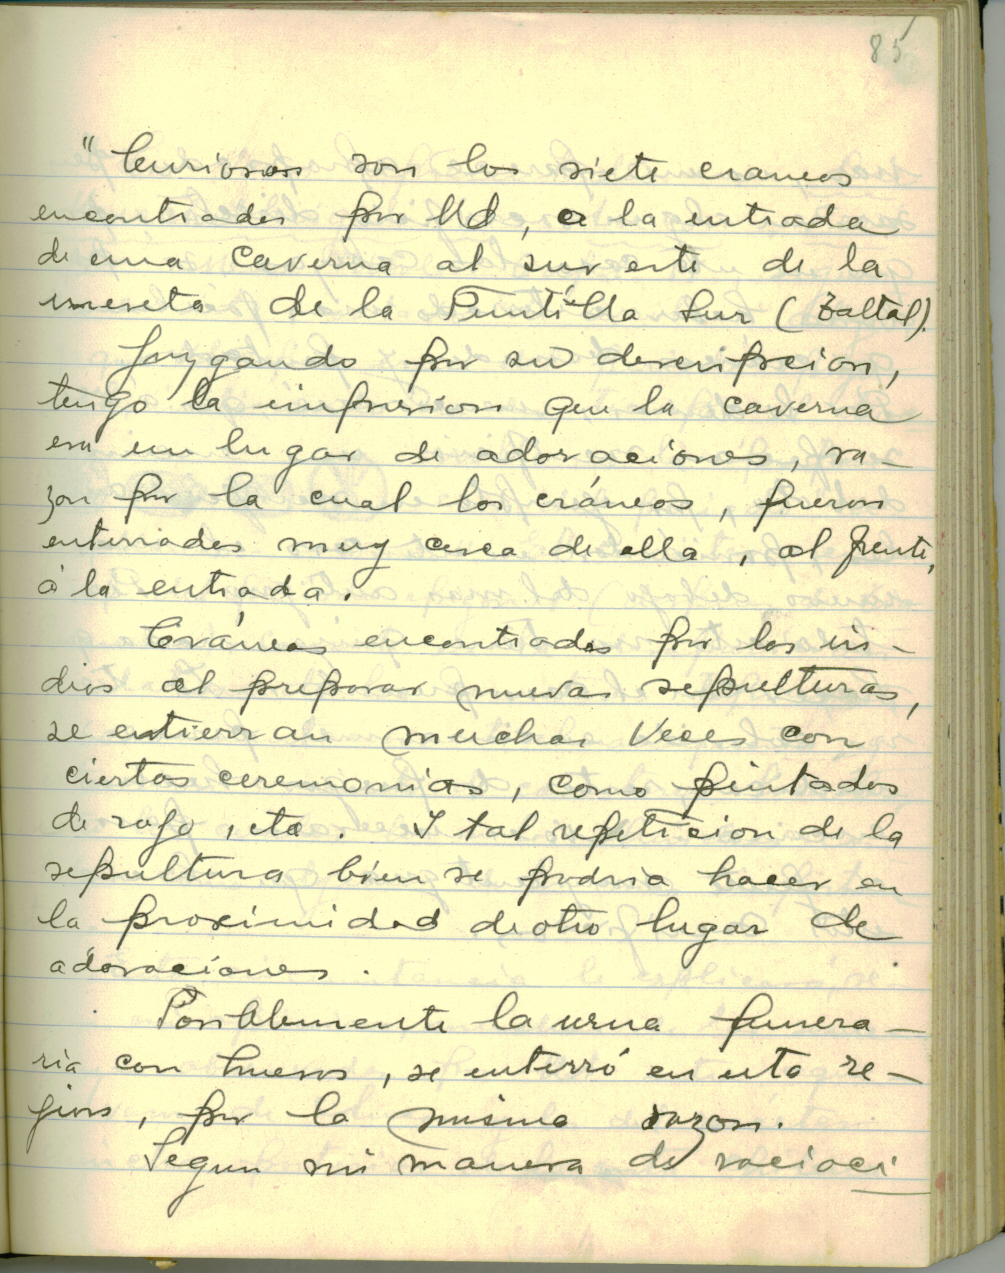 85
"Curiosos son los siete craneos
encontrados por Ud, a la entrada
de una caverna al sur este de la
meseta de la Puntilla Sur (Zaltal).
Juzgando por su descripcion,
tengo la impresion que la caverna
era un lugar de adoraciones, ra-
zon por la cual los cráneos, fueron
enterrados muy cerca de ella, al frente,
á la entrada.
Cráneos encontrados por los in-
dios al preparar nuevas sepulturas,
se entierran muchas veces con
ciertas ceremonias, como pintados
de rojo, etc. I tal repeticion de la
sepultura bien se podria hacer en
la proximidad de otro lugar de
adoraciones.
Posiblemente la urna funera-
ria con huesos, se enterró en esta re-
gion, por la misma razon.
Segun mi manera de racioci